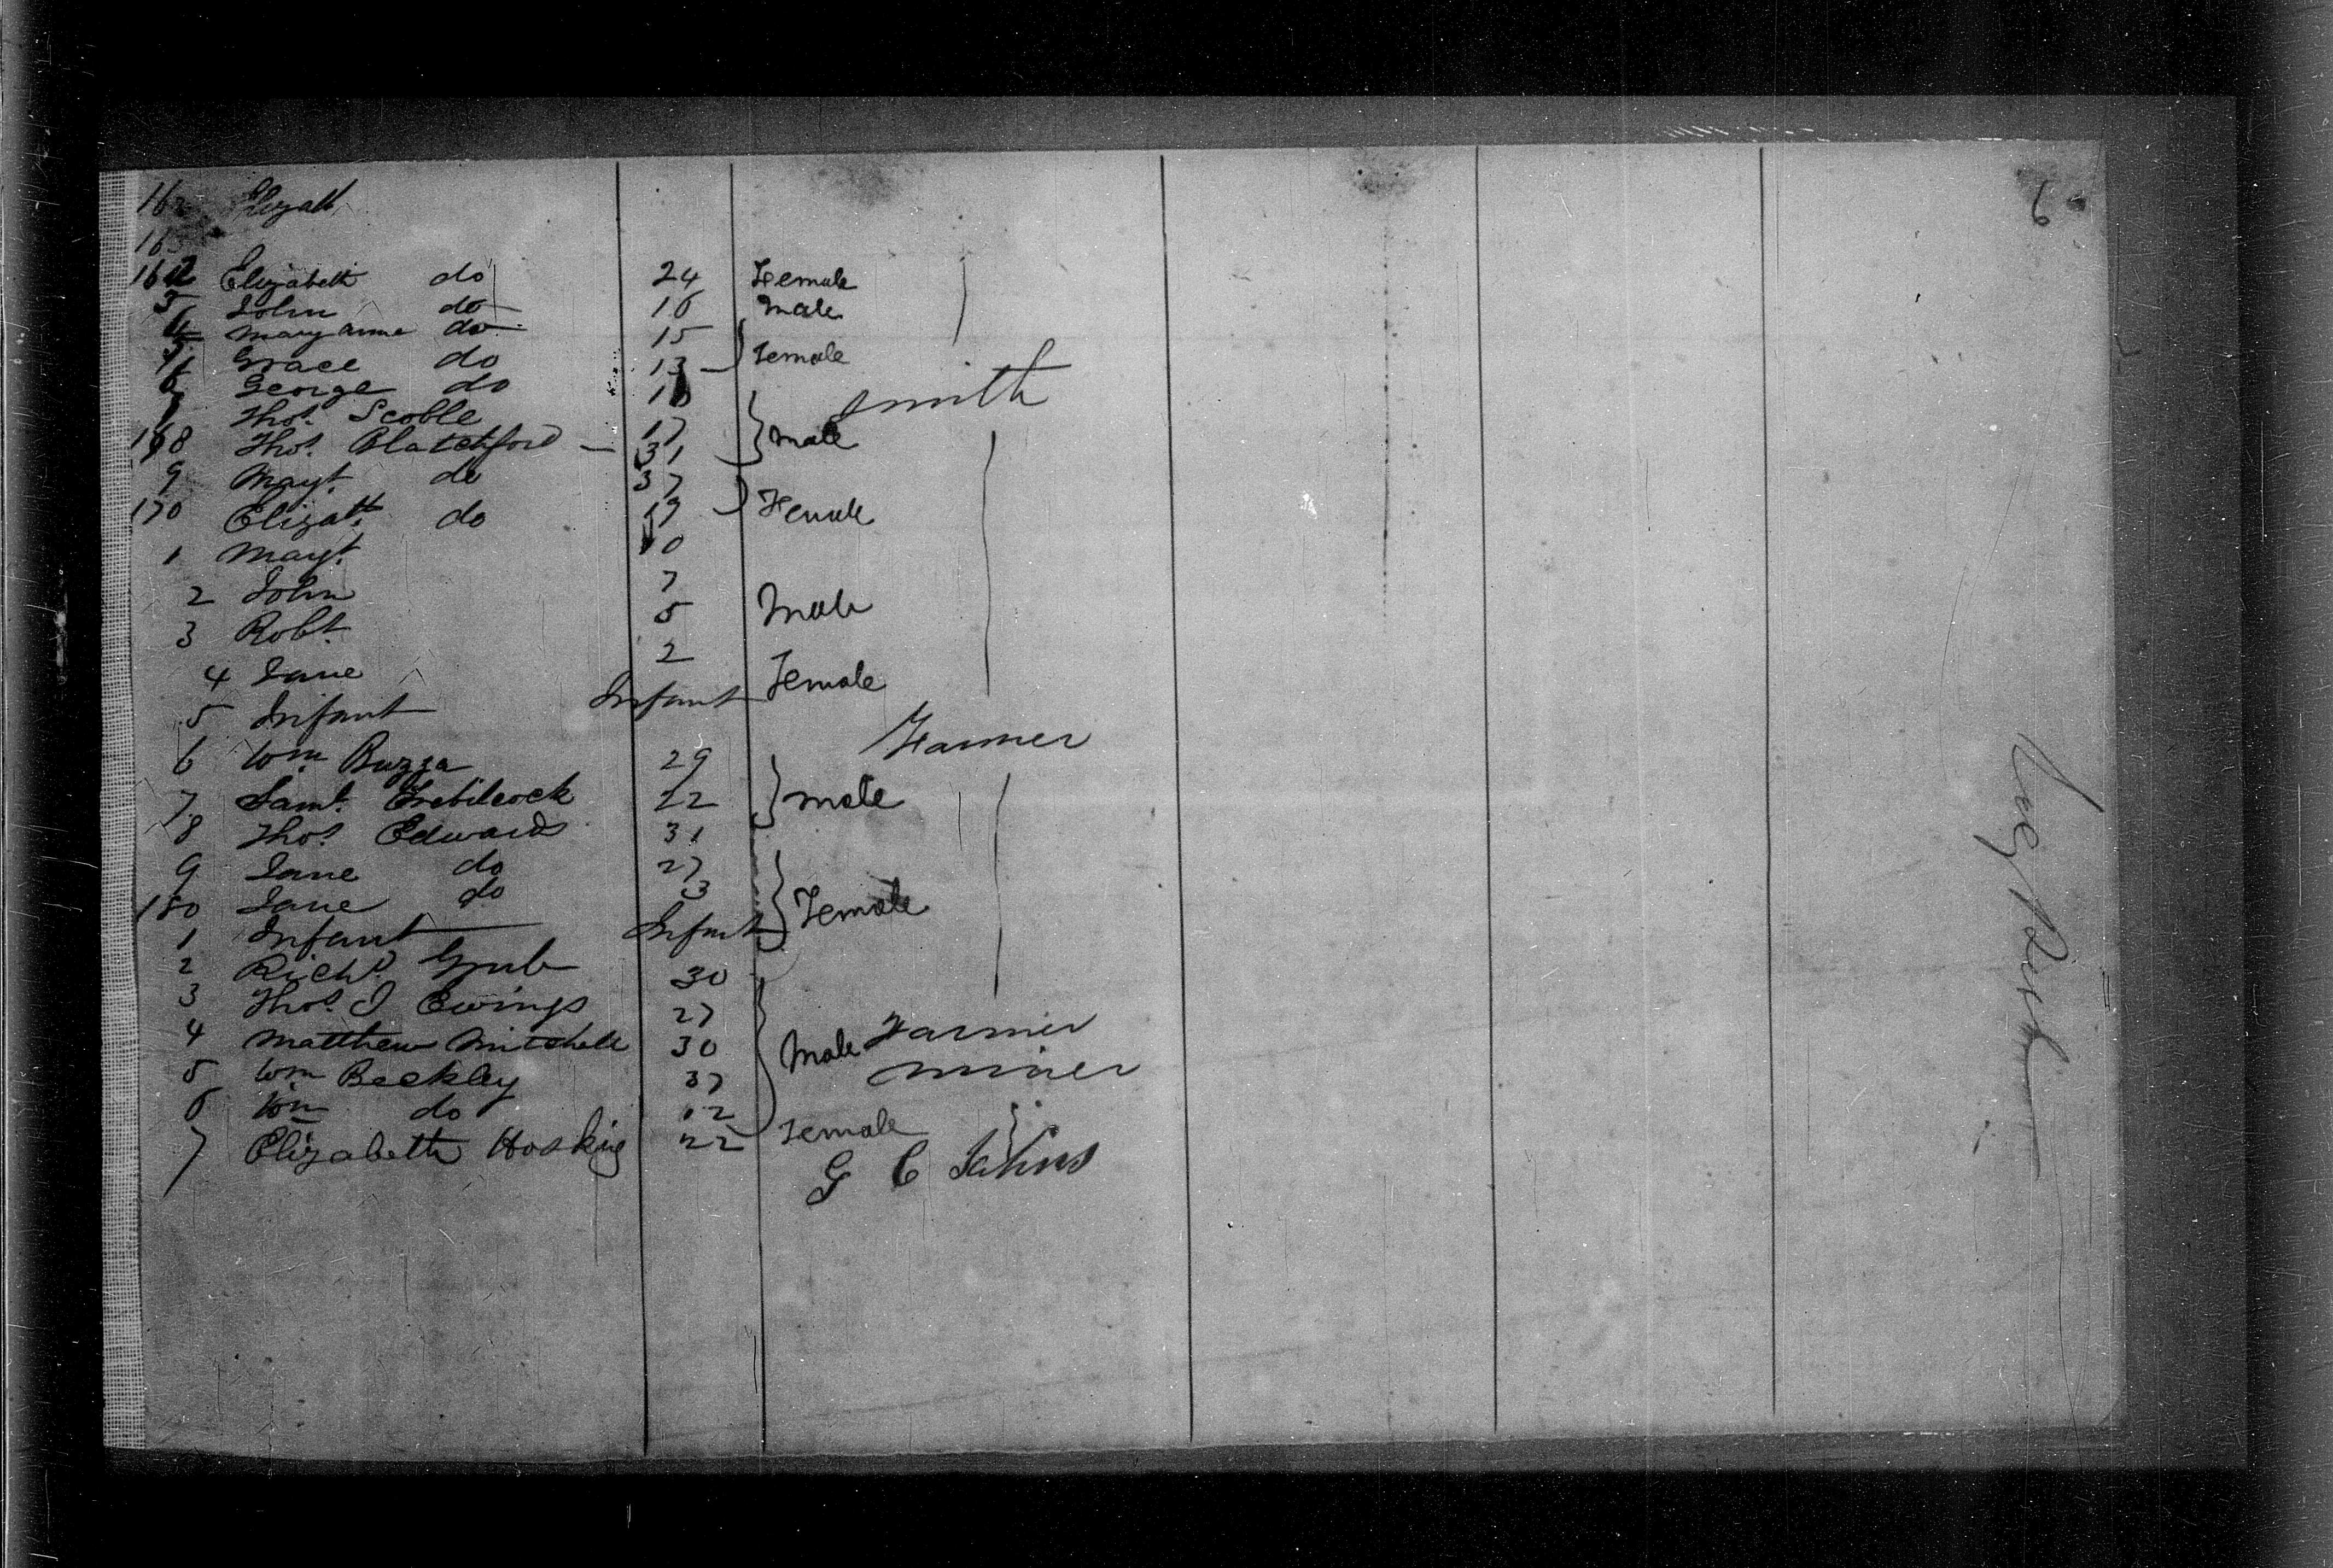 16 Elizab
16
162 Elizabeth do 24 Female
3 John do 16 male
4 Mary anne do 15
5 Grace do 13 Female
6 George do 10 Smith
7 Thos. Scoble 17 male
168 Thos. Blatchford — 31
9 Mayt. do 37
170 Elizatt. do 19 Female
1 Mayt. 10
2 John 7
3 Robt. 5 Male
4 Jane 2
5 Infant Infant Female
6 Wm Buzza 29 Farmer
7 Saml. Trebilcock 22 male
8 Thos. Edwards 31
9 Jane do 27
180 Jane do 3 Female
1 Infant Infant
2 Richd. Grub 30
3 Thos. J Ewings 27
4 Matthew Mitchell 30 Male Farmer
5 Wm Beckley 37 miner
6 Wm do 12
7 Elizabeth Hosking 22 Female
G C Johns